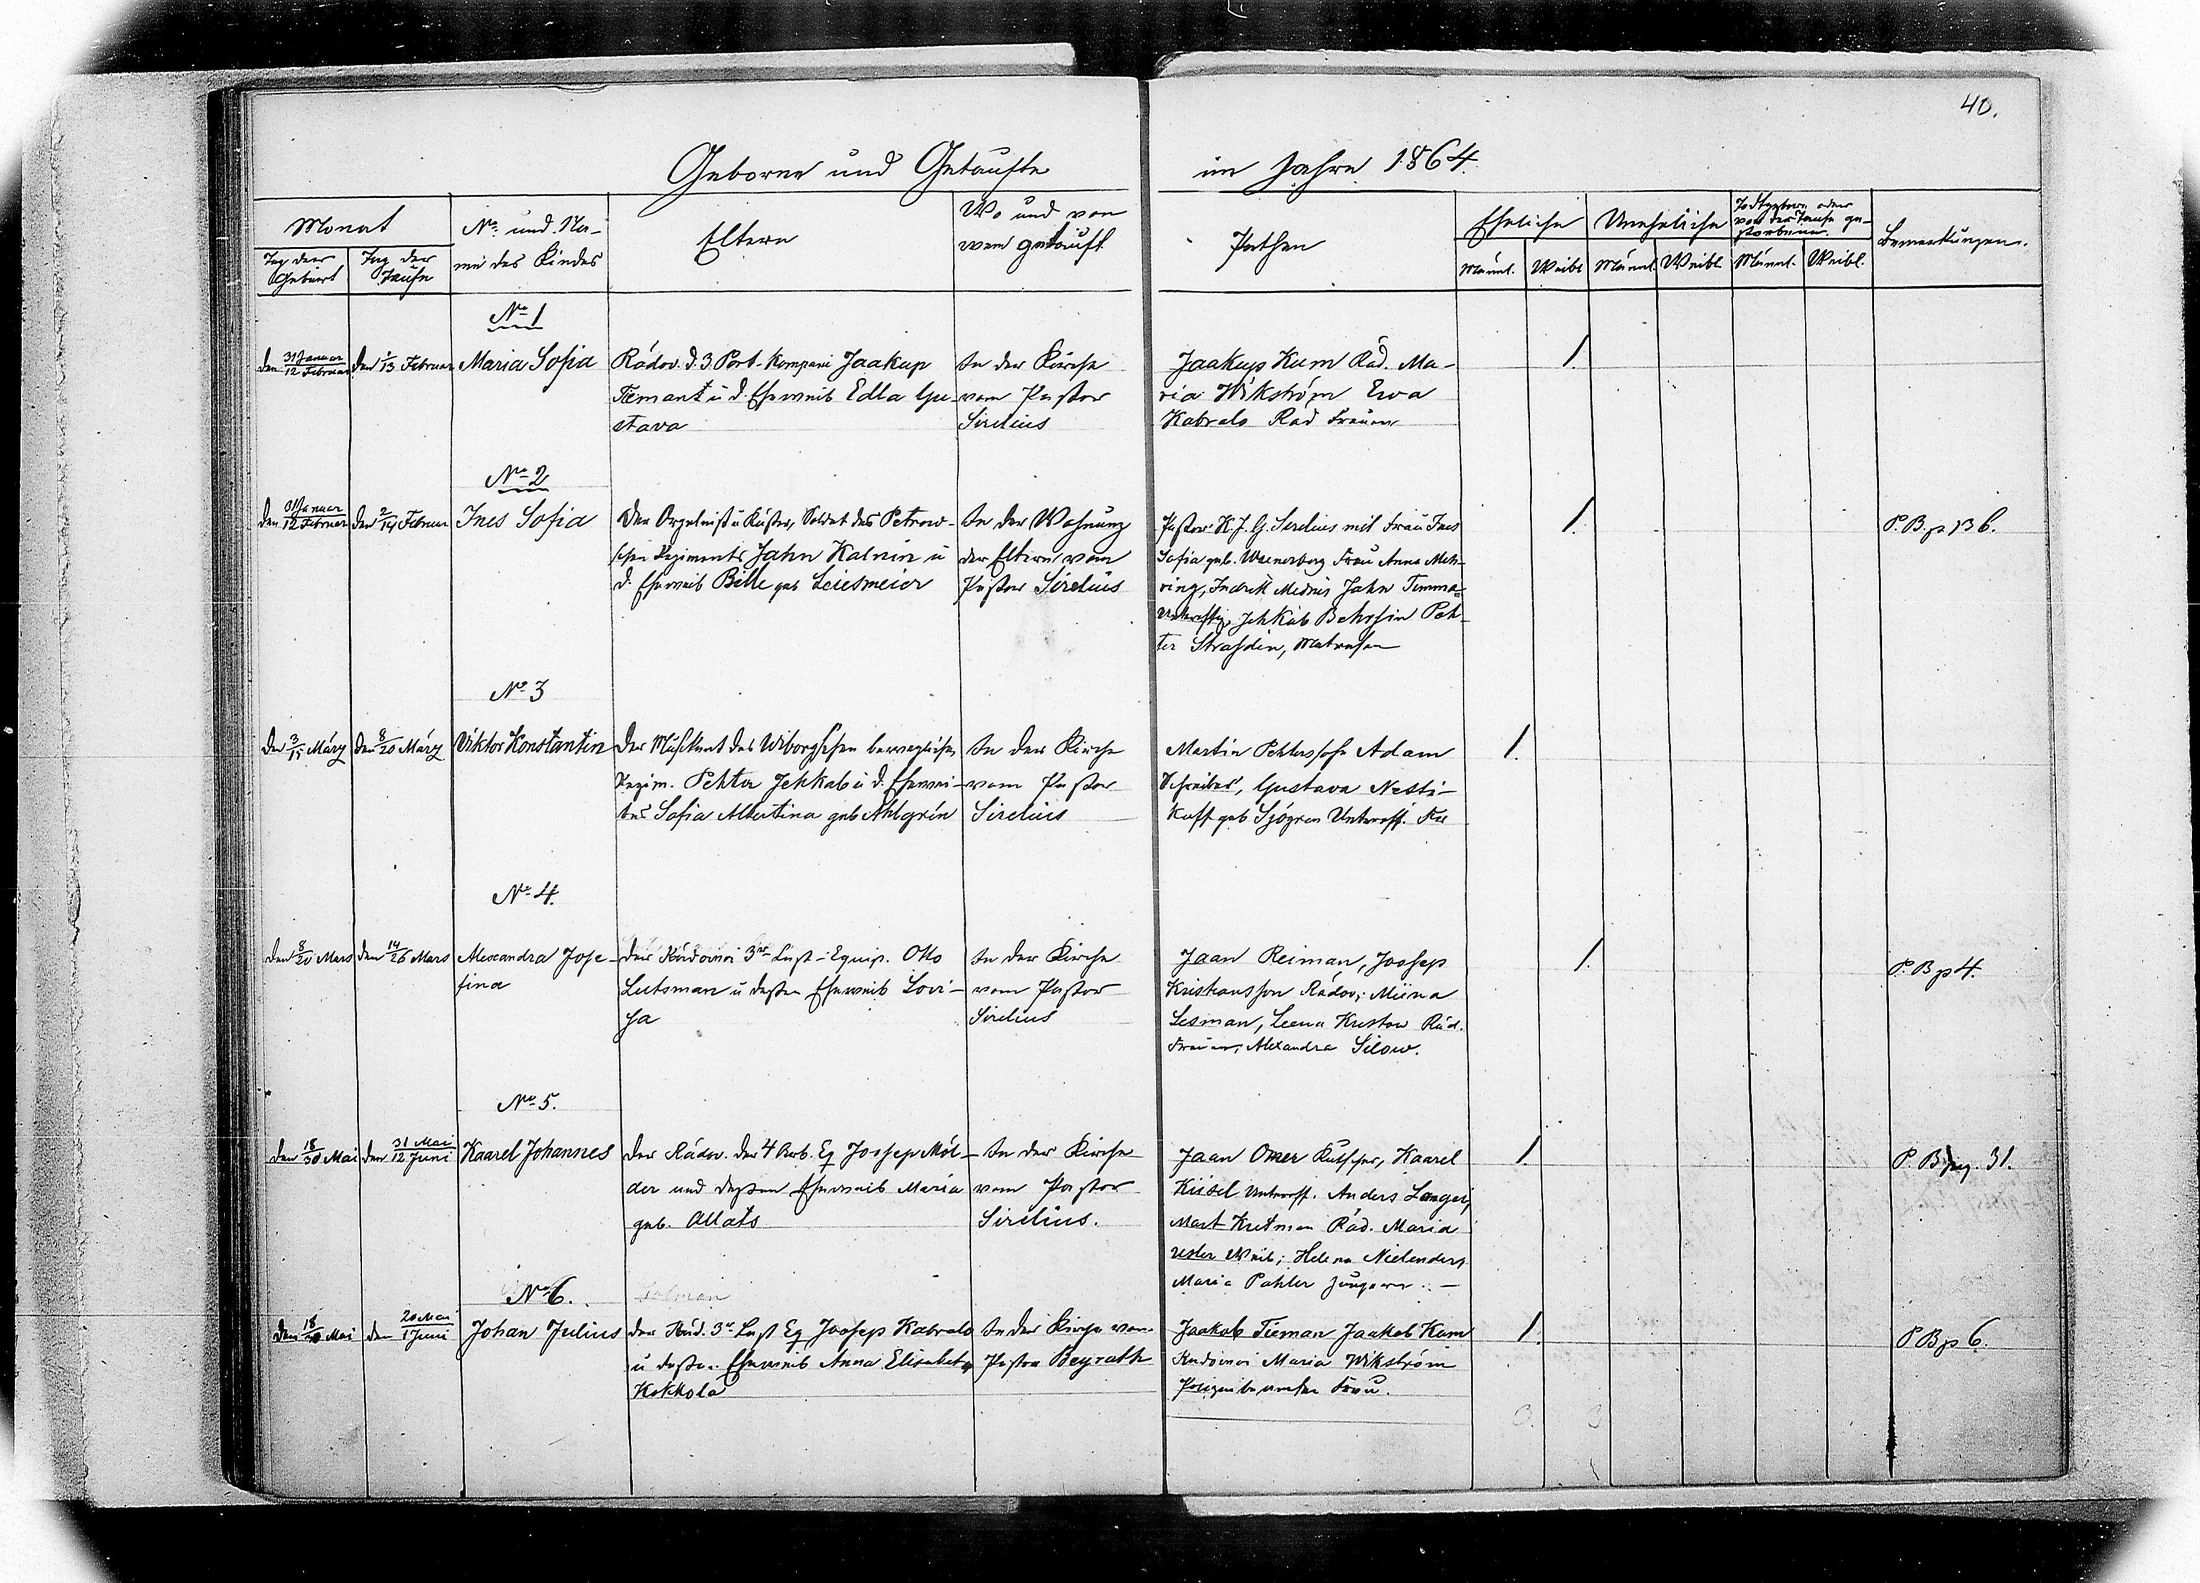 40.
Geborne und Getaufte im Jahre 1864.
Monat
Tag der Geburt
Tag der Taufe
No und Na-
me des Kindes
Eltern
Wo und von
wem getauft
Pathen
Eheliche
Uneheliche
Todtgeborne oder
vor der Taufe ge-
storbene.
Bemerkungen.
Männl. Weibl. Männl. Weibl. Männl. Weibl.
No 1
den 31 Januar/12 Februar
den 1/13 Februar
Maria Sofia
Rädov. d. 3 Port. Kompani Jaakup
Tiemant u d. Eheweib Edla Gu-
stava
In der Kirche
vom Pastor
Sirelius
Jaakup Kum Räd. Ma-
ria Wikström Ewa
Kabralo Räd Frauen
1.
No 2
den 31 Januar/12 Februar
den 2/14 Februar
Ines Sofia
Der Orgelnist u Küster, Soldat des Petrow-
schen Regiments Jahn Kalnin u
d. Eheweib Bille geb Leiesmeier
In der Wohnung
der Eltern vom
Pastor Sirelius
Pastor K. J. G. Sirelius mit Frau Ines
Sofia geb. Frau Anna Meh-
ring, Indrik Mednis Jahn Timma
Unteroffiz, Jehkab Behrsin Peh-
ter Strasdin, Matrosen
1.
P. B. p 136.
No 3
den 3/15 März
den 8/20 März
Viktor Konstantin
Der Musikant des Wiborgschen beweglichen
Regim. Pehter Jehkab u d. Ehewei-
bes Sofia Albertina geb Ahlgrén
In der Kirche
vom Pastor
Sirelius
Martin Pehterssohn Adam
Schreiber, Gustava Nesti-
koff geb Sjögren Unteroff.
1.
No 4.
den 8/20 Mars
den 14/26 Mars
Alexandra Jose-
fina
der Rädovoi 3ter Last-Equip. Otto
Lutsman u dessen Eheweib Lovi-
sa
In der Kirche
vom Pastor
Sirelius
Jaan Reiman, Joosep
Kristiansson Rädov; Miina
Lesman, Leena Kristow Räd.
Frauen; Alexandra Silow.
1.
P. B p 4.
No 5.
den 18/30 Mai
den 31 Mai/12 Juni
Kaarel Johannes
der Rädov. der 4 Arb. Eq Joosep Möl-
der und dessen Eheweib Maria
geb. Allats
In der Kirche
vom Pastor
Sirelius.
Jaan Omer Kutscher, Kaarel
Kiisel Unteroff. Anders Langei,
Mart Kretman Räd. Maria
Uesler Weib; Helena Nielender,
Maria Pahler Jungwer. —
1.
P. B. pg. 31.
No 6.
den 18/30 Mai
den 20 Mai/1 Juni
Johan Julius
der Räd. 3r Last Eq Joosep Kabralo
u dessen Eheweib Anna Elisabeta
Kokkola
In der Kirche vom
Pastor Beyrath
Jaakob Tieman Jaakob Kum
Rädovoi Maria Wikström
Frau.
1.
P. B p 6.